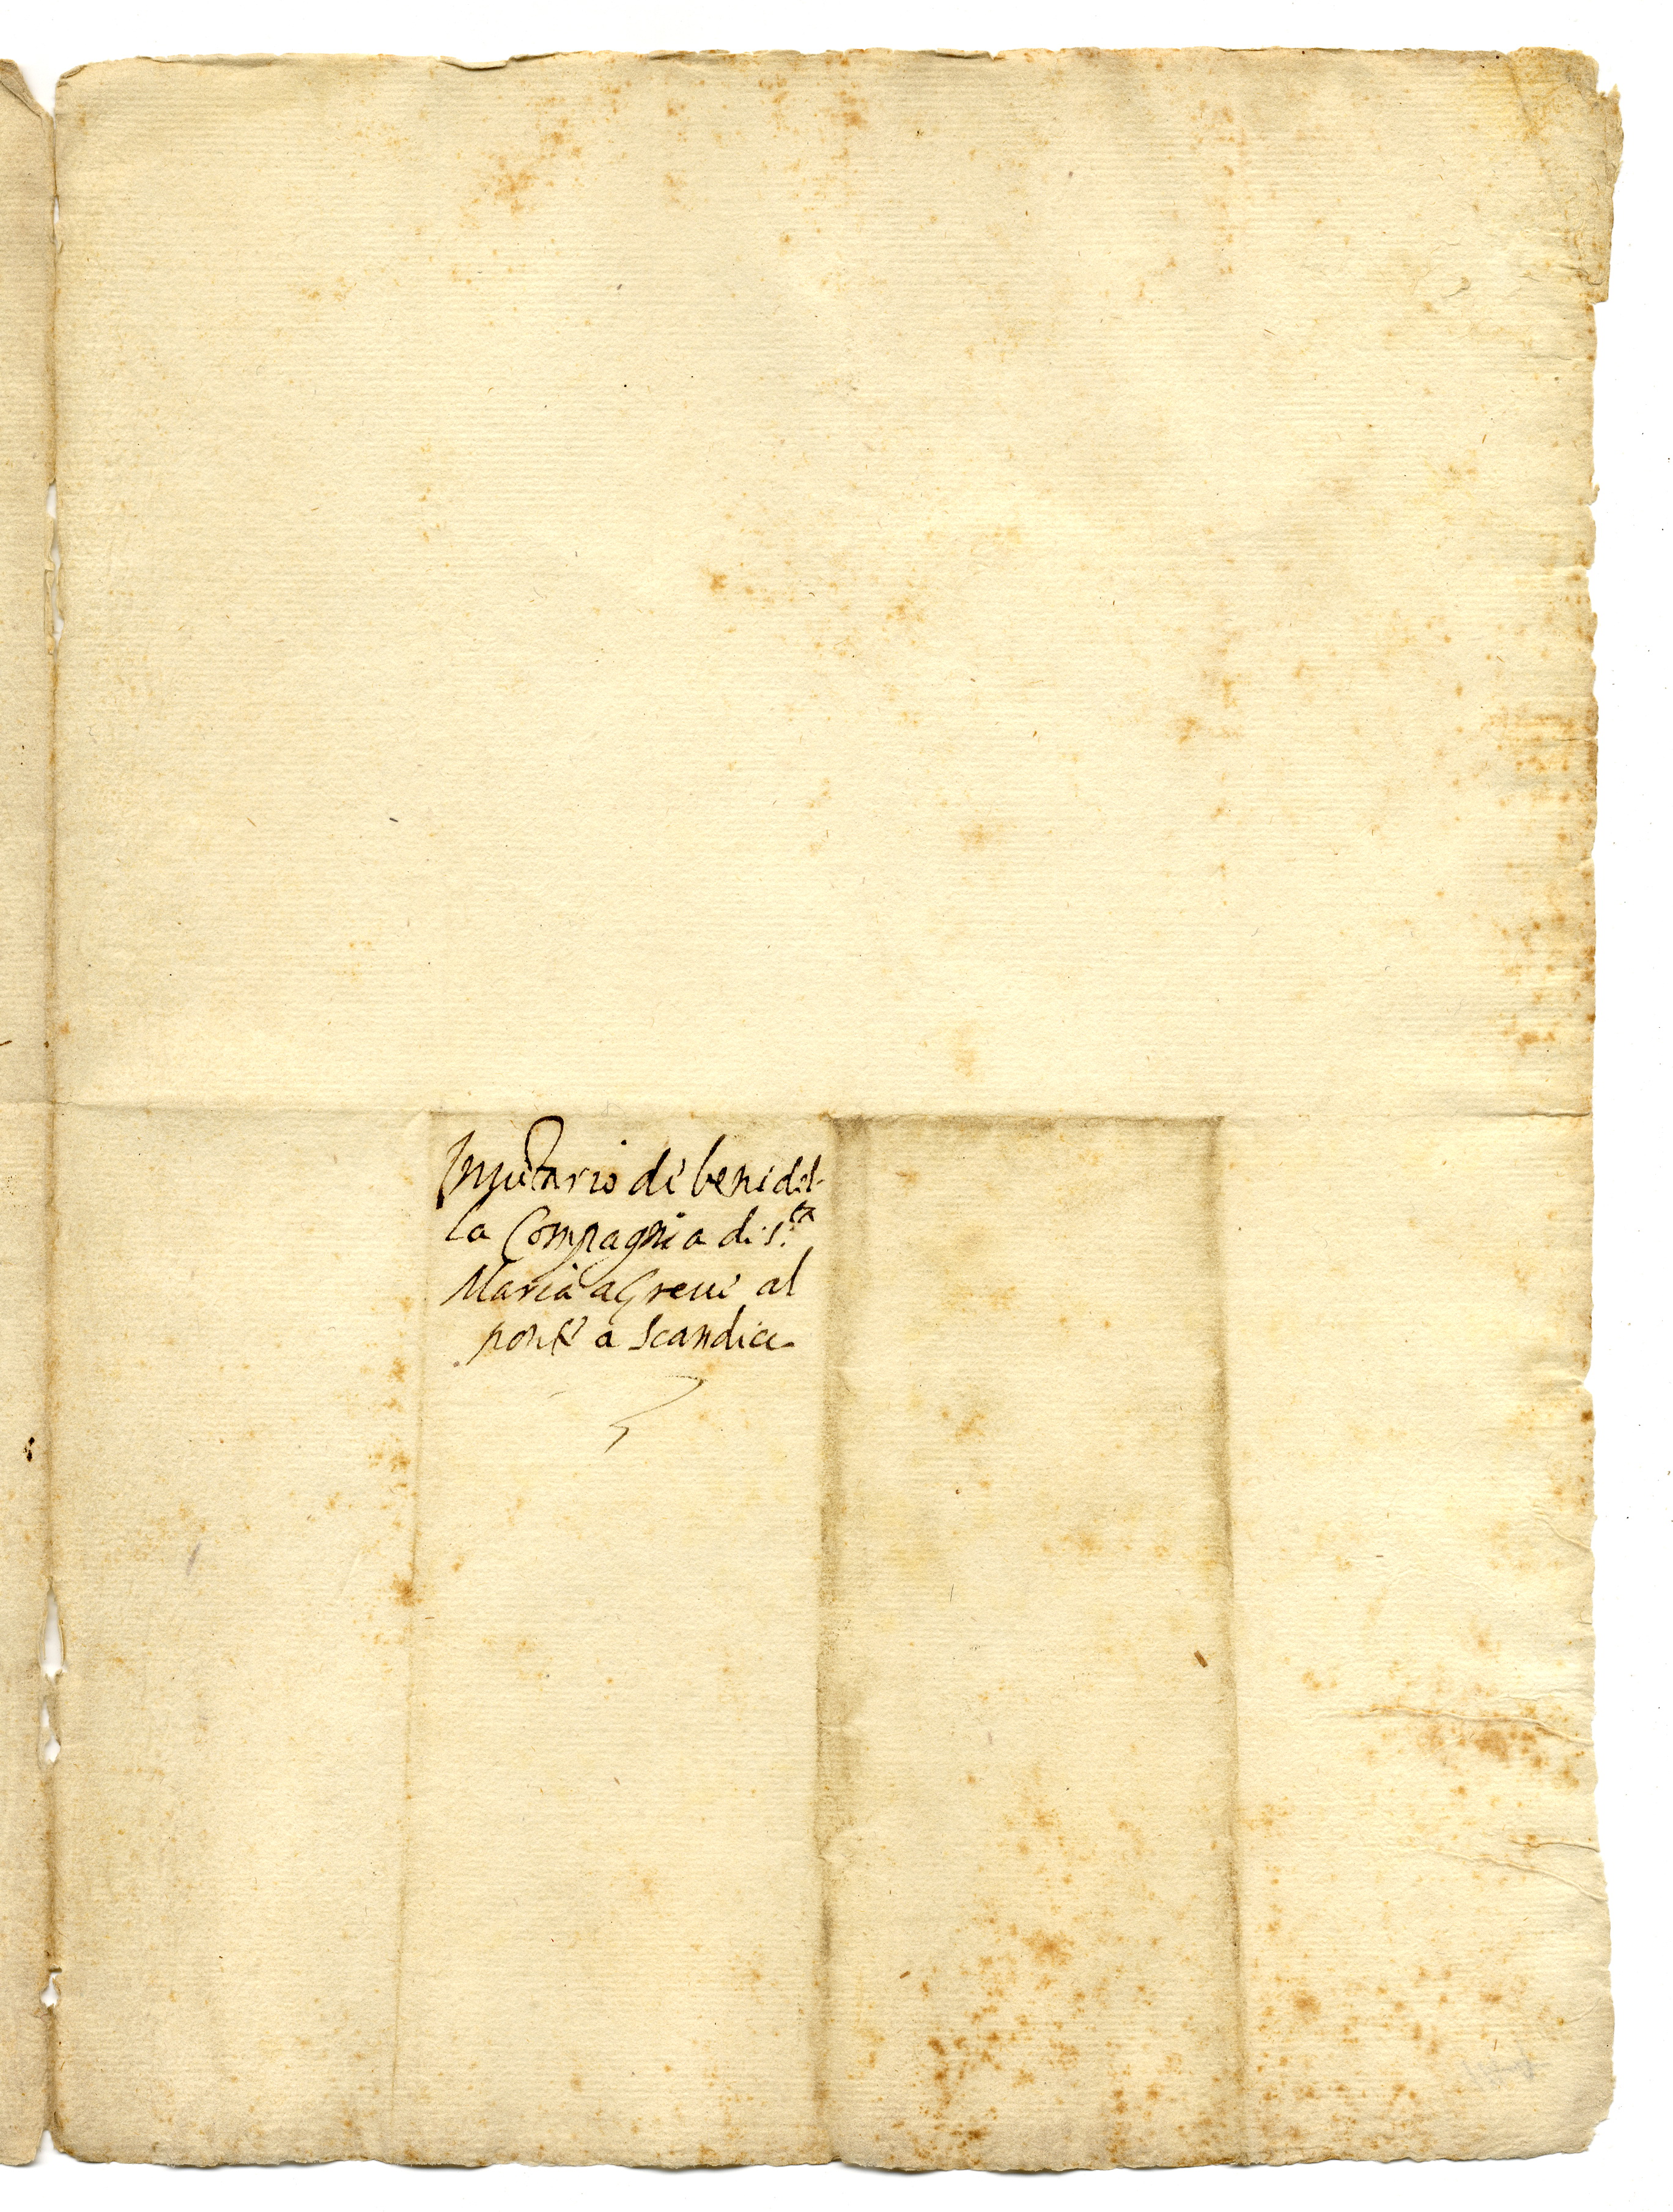 Inuẽtario di beni del-
la Compagnia di S.ta
Maria a Greui al
ponte a Scandicci